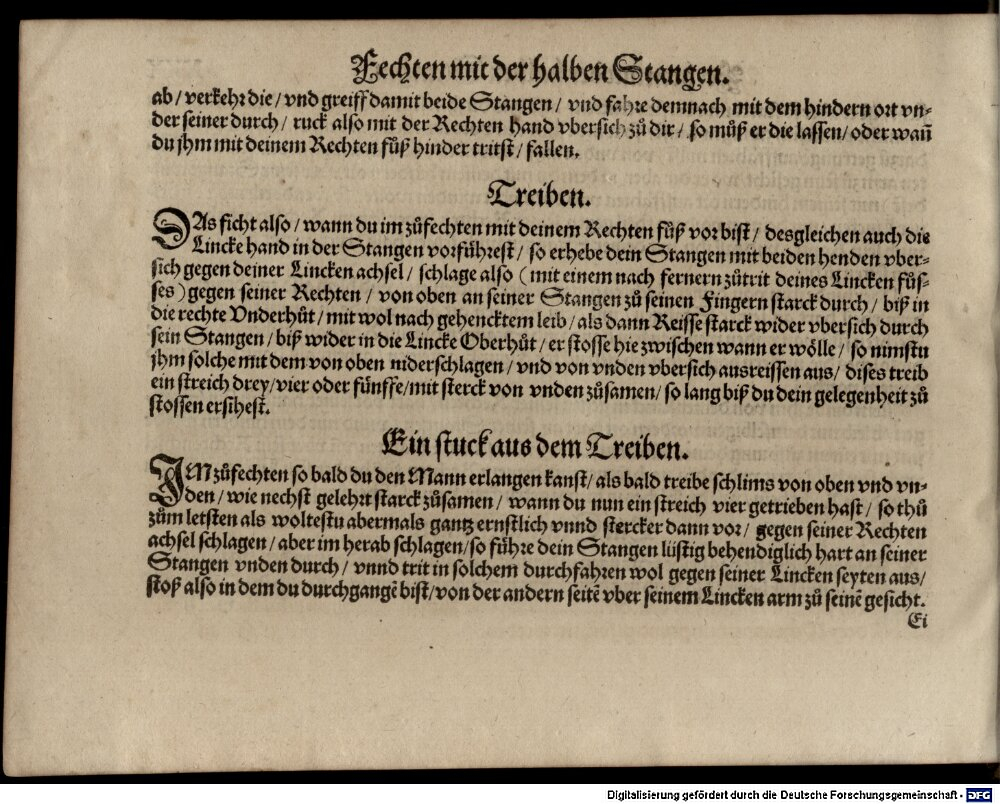 Fechten mit der halben Stangen.
ab / verkehr die / vnd greiff damit beide Stangen / vnd fahre demnach mit dem hindern ort vn-
der seiner durch / ruck also mit der Rechten hand vbersich zů dir / so můß er die lassen / oder wañ
du jhm mit deinem Rechten fůß hinder tritst / fallen.
Treiben.
DAs ficht also / wann du im zůfechten mit deinem Rechten fůß vor bist / desgleichen auch die
Lincke hand in der Stangen vorführest / so erhebe dein Stangen mit beiden henden vber-
sich gegen deiner Lincken achsel / schlage also (mit einem nach fernern zůtrit deines Lincken fůs-
ses) gegen seiner Rechten / von oben an seiner Stangen zů seinen Fingern starck durch / biß in
die rechte Vnderhůt / mit wol nach gehencktem leib / als dann Reisse starck wider vbersich durch
sein Stangen / biß wider in die Lincke Oberhůt / er stosse hie zwischen wann er wölle / so nimstu
jhm solche mit dem von oben niderschlagen / vnd von vnden vbersich ausreissen aus / dises treib
ein streich drey / vier oder fünffe / mit sterck von vnden zůsamen / so lang biß du dein gelegenheit zů
stossen ersihest.
Ein stuck aus dem Treiben.
IM zůfechten so bald du den Mann erlangen kanst / als bald treibe schlims von oben vnd vn-
den / wie nechst gelehrt starck zůsamen / wann du nun ein streich vier getrieben hast / so thů
zům letsten als woltestu abermals gantz ernstlich vnnd stercker dann vor / gegen seiner Rechten
achsel schlagen / aber im herab schlagen / so führe dein Stangen lüstig behendiglich hart an seiner
Stangen vnden durch / vnnd trit in solchem durchfahren wol gegen seiner Lincken seyten aus /
stoß also in dem du durchgangē bist / von der andern seitē vber seinem Lincken arm zů seinē gesicht.
Ei
Digitalisierung gefördert durch die Deutsche Forschungsgemeinschaft - DFG